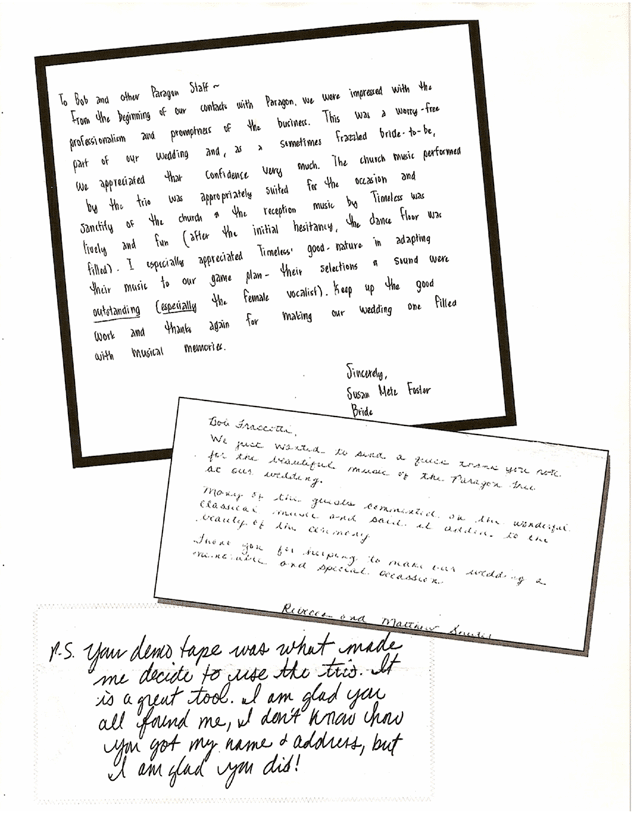 To Bob and other Paragon Staff ~
From the beginning of our contacts with Paragon, we were impressed with the
professionalism and promptness of the business. This was a worry-free
part of our wedding and, as a sometimes frazzled bride-to-be,
we appreciated that confidence very much. The church music performed
by the trio was appropriately suited for the occasion and
sanctity of the church & the reception music by Timeless was
lively and fun (after the initial hesitancy, the dance floor was
filled). I especially appreciated Timeless' good-nature in adapting
their music to our game plan - their selections & sound were
outstanding (especially the female vocalist). Keep up the good
work and thanks again for making our wedding one filled
with musical memories.
Sincerely,
Susan Foster
Bride
Bob
We just wanted to send a quick thank you note
for the beautiful music of the Paragon trio
at our wedding.
Many of the guests commented on the wonderful
classical music and said it added to the
beauty of the ceremony
Thank you for helping to make our wedding a
memorable and special occassion.
Rebecca and Matthew
P.S. Your demo tape was what made
me decide to use the trio. It
is a great tool. I am glad you
all found me, I don't know how
you got my name & address, but
I am glad you did!